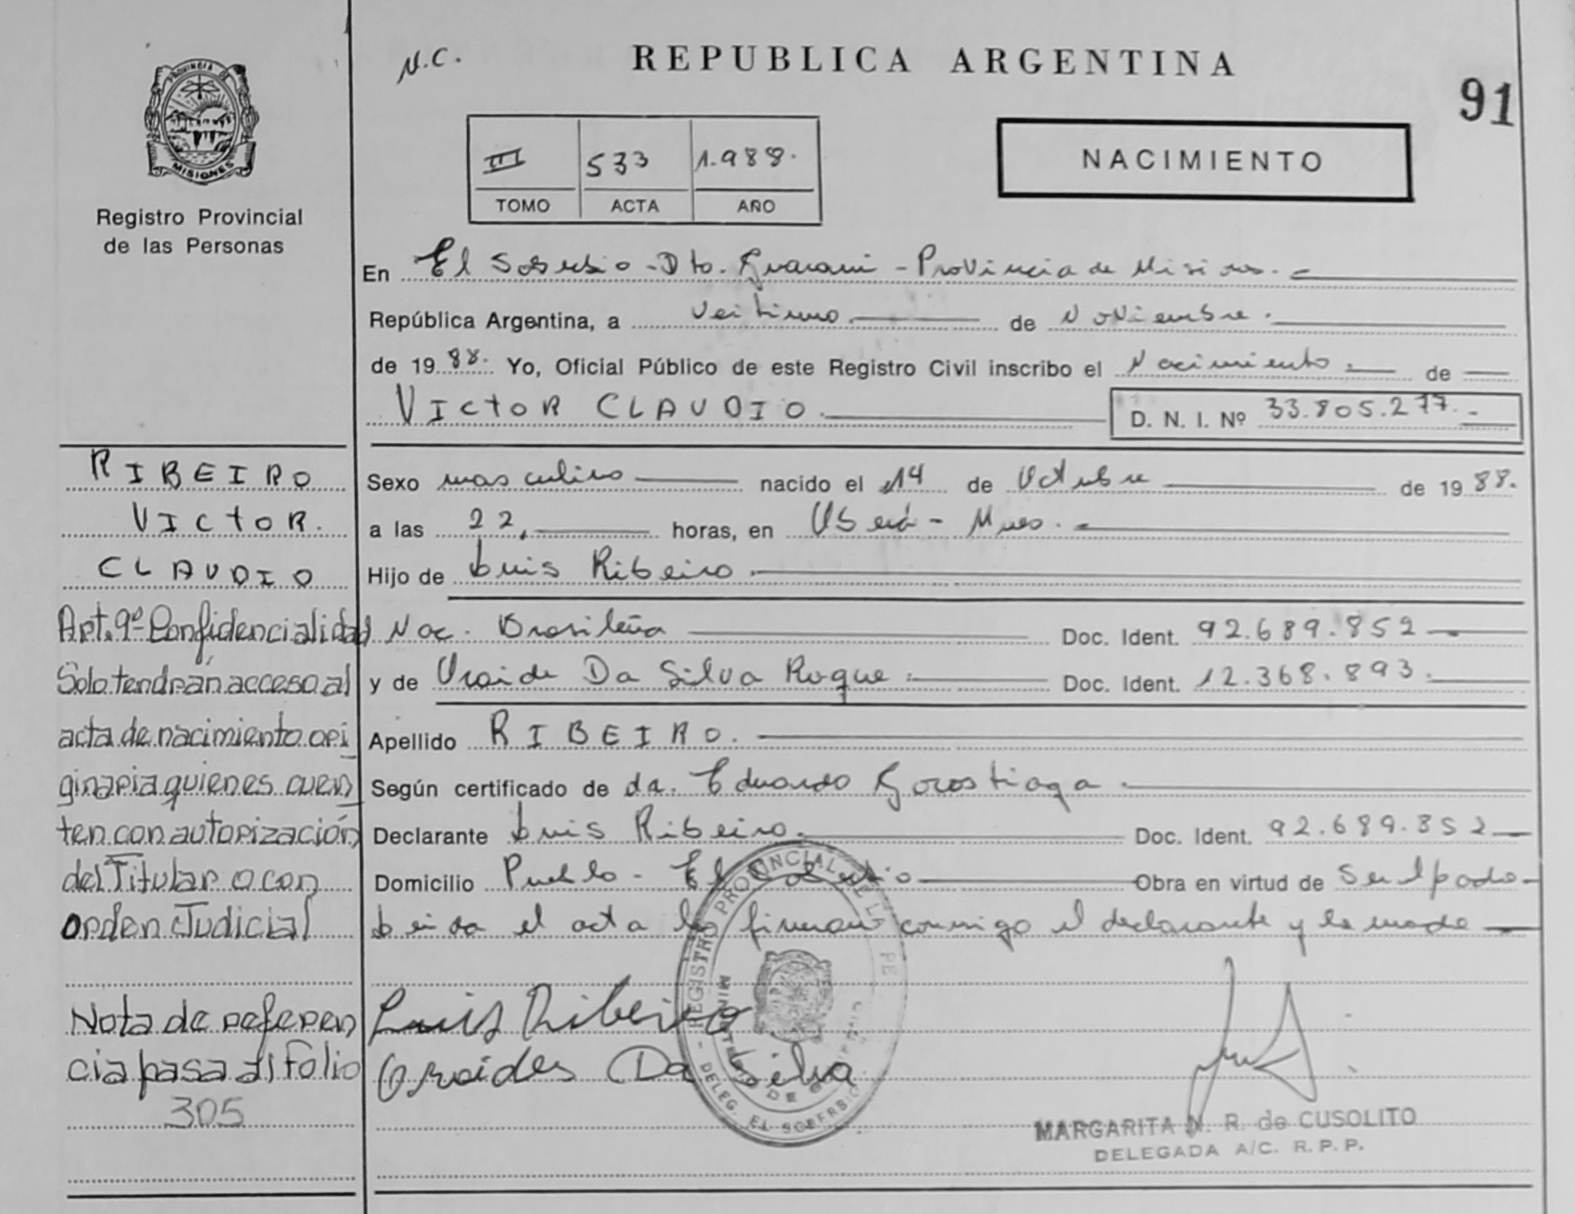 N.C.
REPUBLICA ARGENTINA
91
PROVINCIA DE
MISIONES
Registro Provincial
de las Personas
III 533 1.988.
TOMO ACTA AÑO
NACIMIENTO
En El Soberbio - Dto. Guarani - Provincia de Misiones. -
República Argentina, a Veitiuno de Noviembre.
de 19 88. Yo, Oficial Público de este Registro Civil inscribo el Nacimiento de
VICTOR CLAUDIO. D. N. I. Nº 33.805.277.-
RIBEIRO
VICTOR.
CLAUDIO
Sexo masculino nacido el 14 de Octubre de 19 88.
a las 22, horas, en Oberá - Mnes. -
Hijo de Luis Ribeiro.
Nac. Brasileña Doc. Ident. 92.689.852
y de Da Silva Roque Doc. Ident. 12.368.893.
Apellido RIBEIRO.
Según certificado de da. Eduardo Gorostiaga
Declarante Luis Ribeiro. Doc. Ident. 92.689.852
Domicilio Pueblo - El Soberbio Obra en virtud de Ser el padre
Leida el acta la firman conmigo el declarante y la madre
Art. 9º- Confidencialidad
Solo tendrán acceso al
acta de nacimiento ori
ginaria quienes cuen
ten con autorización
del Titular o con
orden Judicial
Nota de referen
cia pasa al folio
305
Luis Ribeiro
Oraides Da Silva
REGISTRO PROVINCIAL DE LA PE
MINISTERIO DE GOBIERNO
DELEG. EL SOBERBIO
MARGARITA N. R. de CUSOLITO
DELEGADA A/C. R.P.P.